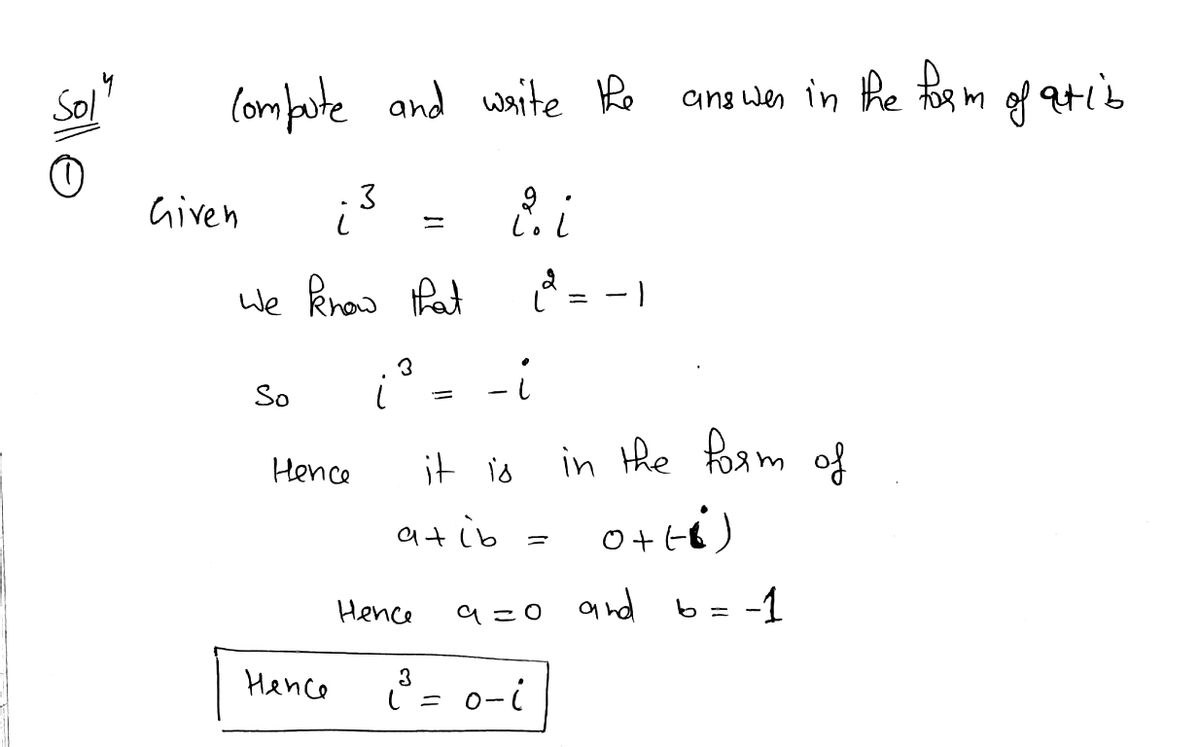 Solⁿ Compute and write the answer in the form of a+ib
①
Given i³ = i².i
We know that i² = -1
So i³ = -i
Hence it is in the form of
a+ib = 0+(-i)
Hence a=0 and b = -1
Hence i³ = 0-i